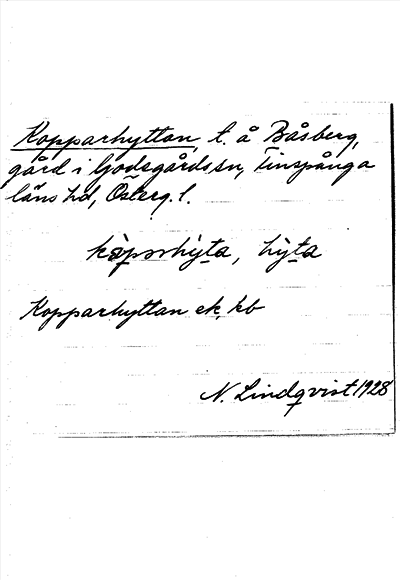 Kopparhyttan, t. å Båsberg,
gård i Godegårds sn, Finspånga
läns hd, Österg. l.
hy̱ta
Kopparhyttan ek, kb
N. Lindqvist 1928